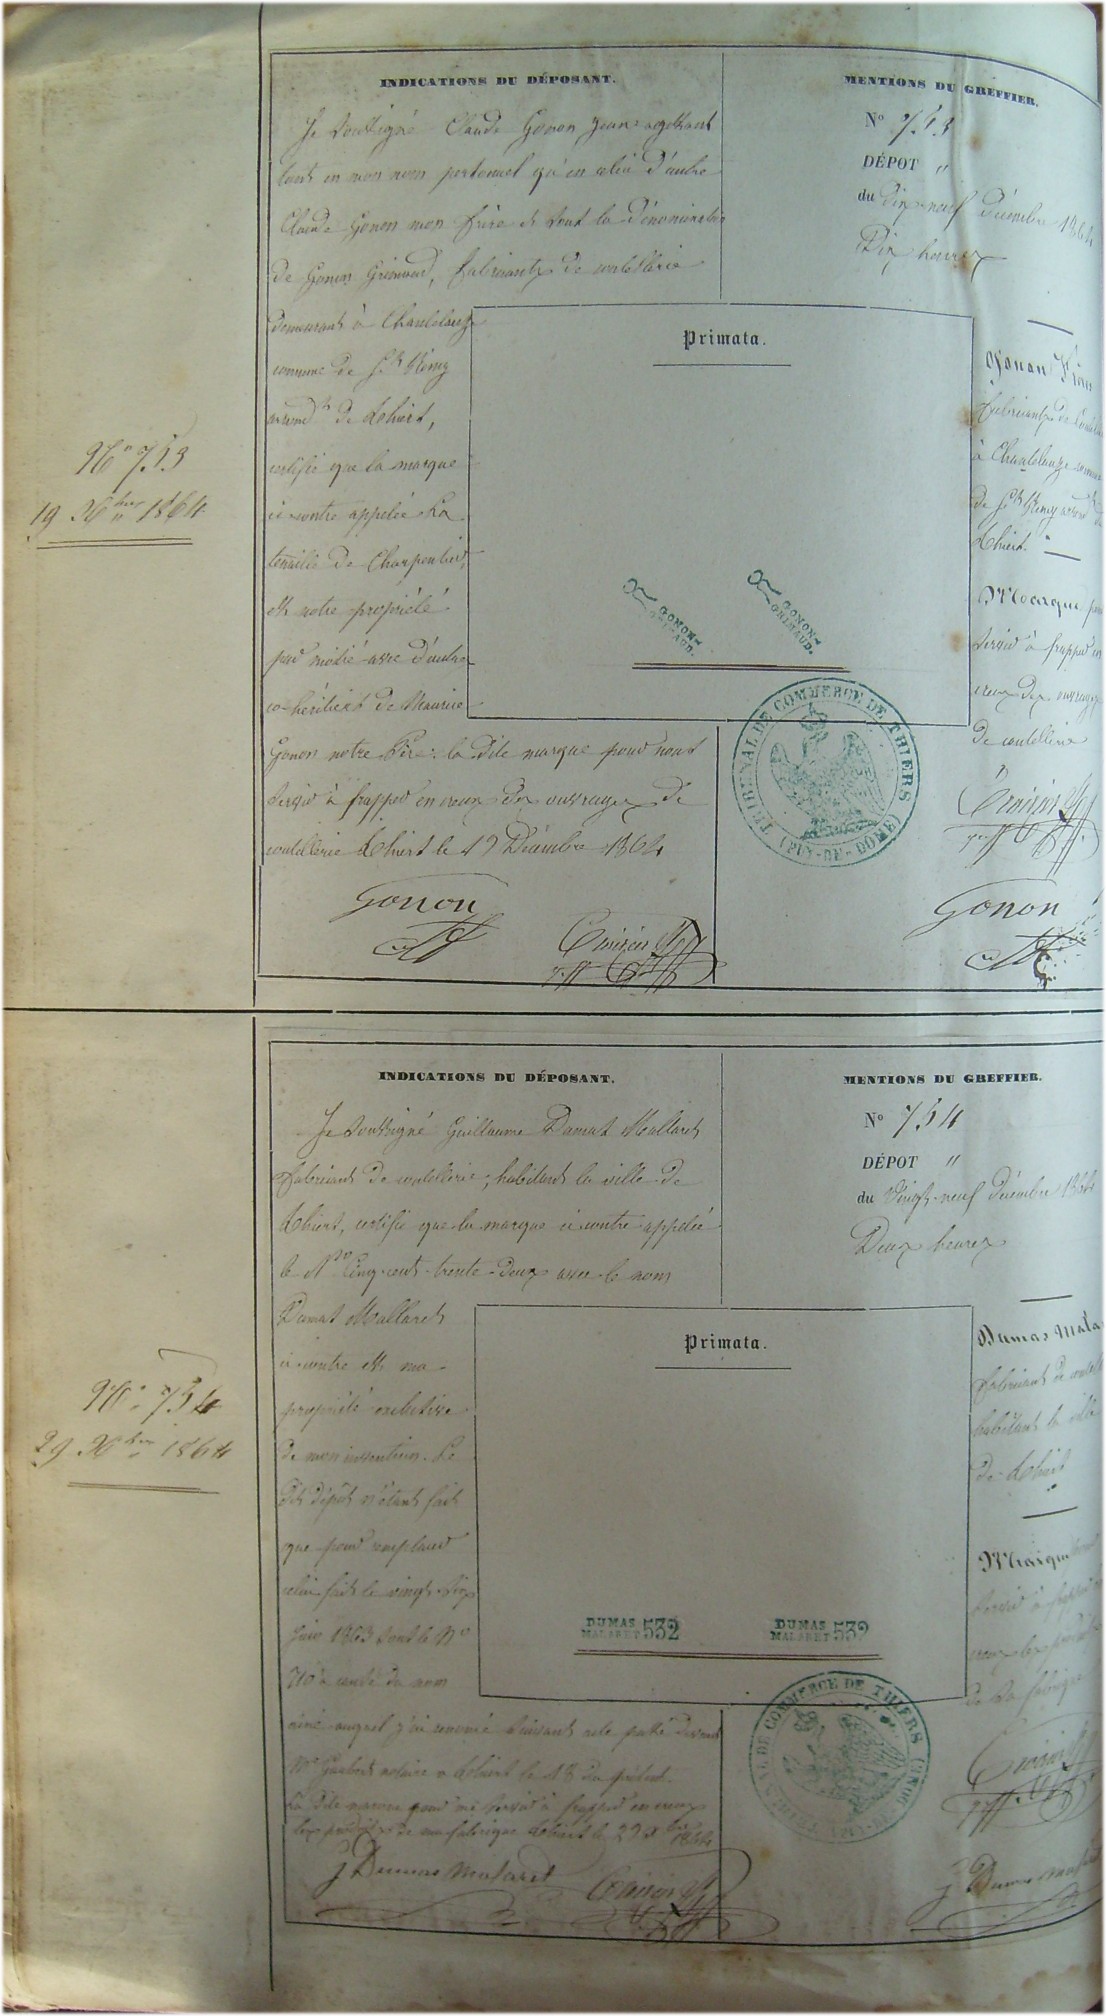 INDICATIONS DU DÉPOSANT.
Je soussigné Claude Gonon jeune agissant
tant en mon nom personnel qu'en celui d'autre
Claude Gonon mon frère et sous la dénomination
de Gonon Grimaud, fabricants de coutellerie
demeurant à Chanteloup
commune de St Rémy
arrondt de Thiers,
certifie que la marque
ci-contre appelée La
tenaille de Charpentier,
est notre propriété
par moitié avec d'autres
co-héritiers de Maurice
Gonon notre Père: la dite marque pour nous
servir à frapper en creux des ouvrages de
coutellerie Thiers le 19 Décembre 1864
Gonon
MENTIONS DU GREFFIER.
No 753
DÉPOT "
du Dix-neuf décembre 1864
Dix heures
Primata.
GONON-
GRIMAUD.
GONON-
GRIMAUD.
TRIBUNAL DE COMMERCE DE THIERS
(PUY-DE-DOME)
Gonon
fabricants de
à
de St Remy
Thiers. "
Marque
servir à frapper en
creux des ouvrages
de coutellerie
Gonon
No 753
19 Xbre 1864
INDICATIONS DU DÉPOSANT.
Je soussigné Guillaume Dumas Mallaret
fabricant de coutellerie, habitant la ville de
Thiers, certifie que la marque ci-contre appelée
le No Cinq-cent-trente-Deux avec le nom
Dumas Mallaret
ci-contre est ma
propriété exclusive
de mon invention. Le
dit dépôt n'étant fait
que pour remplacer
celui fait le vingt-six
juin 1863 sous le No
710 à cause du nom
auquel j'ai renoncé suivant acte passé devant
Me notaire à Thiers le 18 du présent.
La dite marque pour me servir à frapper en creux
les produits de ma fabrique Thiers le 29 Xbre 1864
J Dumas Malaret
MENTIONS DU GREFFIER.
No 754
DÉPOT "
du Vingt-neuf décembre 1864
Deux heures
Primata.
DUMAS
MALARET 532
DUMAS
MALARET 532
TRIBUNAL DE COMMERCE DE THIERS
(PUY-DE-DOME)
Dumas
fabricant de
habitant la ville
de Thiers
Marque
servir à frapper
creux les
de sa fabrique
J Dumas
No 754
29 Xbre 1864